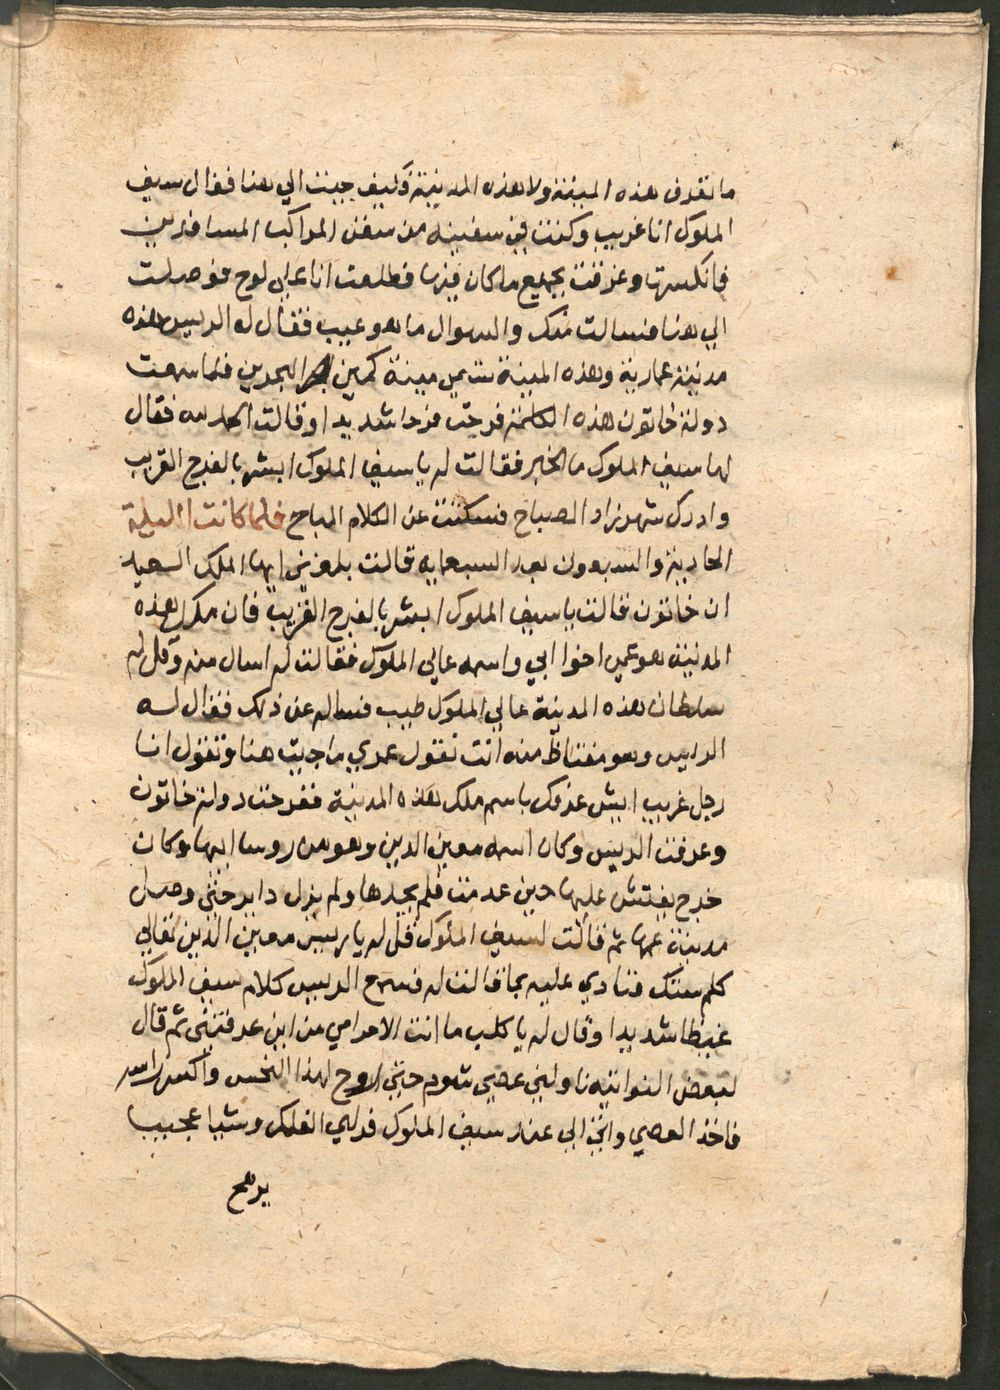 ما تعرف هذه المينة ولا هذه المدينة وكيف جيت الي هنا فقال سيف
الملوك انا غريب وكنت في سفينه من سفن المراكب المسافرين
فانكسرت وغرقت بجميع ما كان فيها فطلعت انا علي لوح فوصلت
الي هنا فسالت منك والسوال ما هو عيب فقال له الريس هذه
مدينة عمارية وهذه المينة تسمي مينة كمين البحرين فلما سمعت
دولة خاتون هذه الكلمة فرحت فرحا شديدا وقالت الحمد لله فقال
لها سيف الملوك ما الخبر فقالت له يا سيف الملوك ابشر بالفرج القريب
وادرك شهرزاد الصباح فسكتت عن الكلام المباح فلما كانت الليلة
الحادية والسبعون بعد السبعمايه قالت بلغني ايها الملك السعيد
ان خاتون قالت يا سيف الملوك ابشر بالفرج القريب فان ملك هذه
المدينة هو عمي اخوا ابي واسمه عالي الملوك فقالت له اسال منه وقل له
سلطان هذه المدينة عالي الملوك طيب فساله عن ذلك فقال له
الرايس وهو مغتاظ منه انت تقول عمري ما جيت هنا وتقول انا
رجل غريب ايش عرفك باسم ملك هذه المدينة ففرحت دولة خاتون
وعرفت الريس وكان اسمه معين الدين وهو من روسا ابيها وكان
خرج يفتش عليها حين عدمت فلم يجدها ولم يزل داير حتي وصل
مدينة عمها ثم قالت لسيف الملوك قل له يا ريس معين الدين تعالي
كلم ستك فنادي عليه بما قالت له فسمع الريس كلام سيف الملوك
غيظا شديدا وقال له يا كلب ما انت الا حرامي من اين عرفتني ثم قال
لبعض النواتيه ناولني عصي شوم حتي اروح لهذا النحس واكسر راسه
فاخذ العصي واتجي الي عند سيف الملوك فرلي الفلك وشيا عجيبا
يرهج